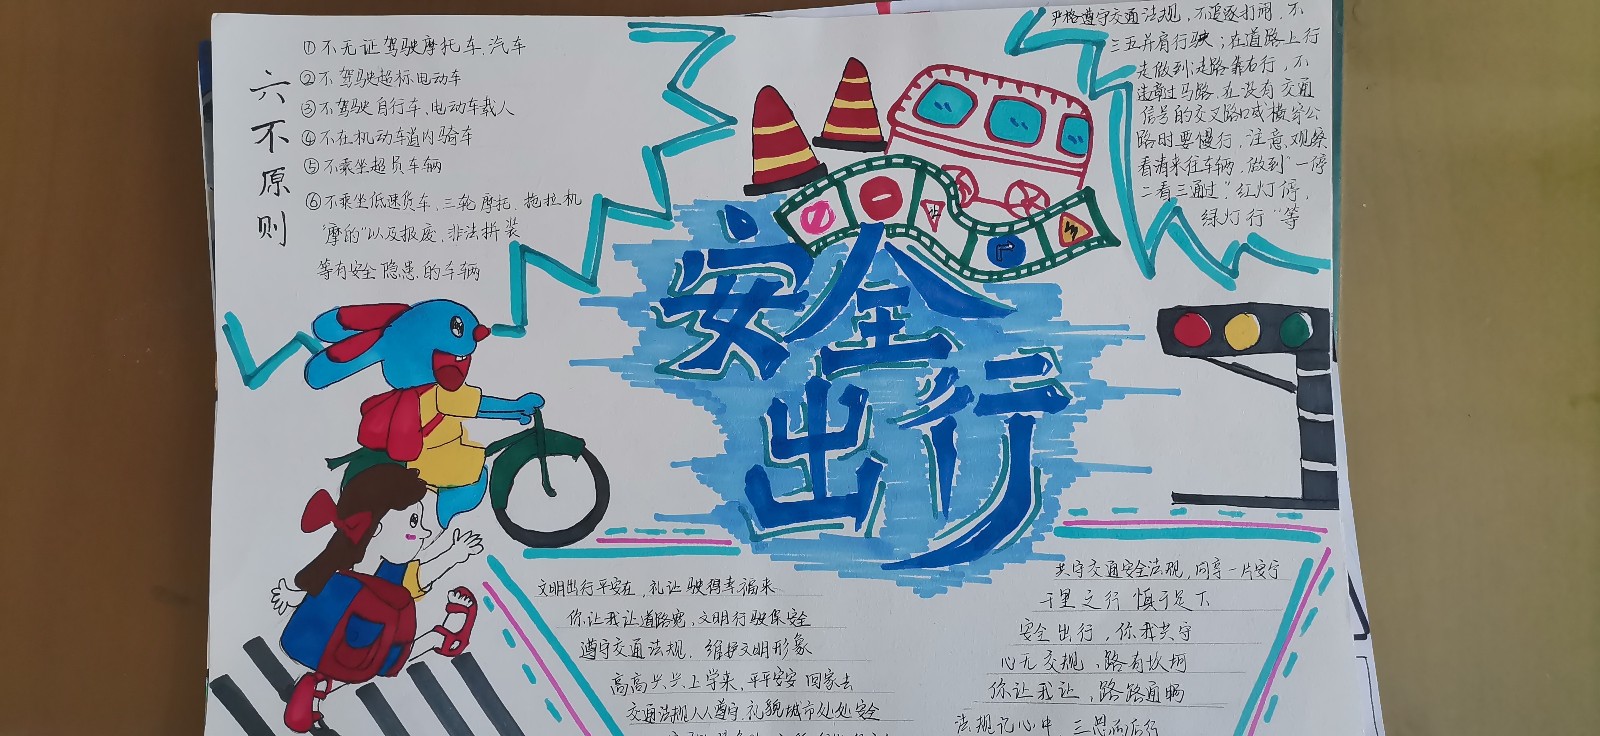 六不原则
①不无证驾驶摩托车、汽车
②不驾驶超标电动车
③不驾驶自行车、电动车载人
④不在机动车道内骑车
⑤不乘坐超员车辆
⑥不乘坐低速货车、三轮摩托、拖拉机
"摩的"以及报废,非法拼装
等有安全隐患的车辆
严格遵守交通法规,不追逐打闹,不
三五并肩行驶;在道路上行
走做到走路靠右行,不
违章过马路.在没有交通
信号的交叉路口或横穿公
路时要慢行,注意观察
看清来往车辆,做到"一停
二看三通过","红灯停,
绿灯行"等
安全
出行
文明出行平安在,礼让驶得幸福来
你让我让道路宽,文明行驶保安全
遵守交通法规,维护文明形象
高高兴兴上学来,平平安安回家去
交通法规人人遵守,礼貌城市处处安全
共守交通安全法规,同享一片安宁
千里之行 慎于足下
安全出行,你我共守
心无交规,路有坎坷
你让我让,路路通畅
法规记心中,三思而后行